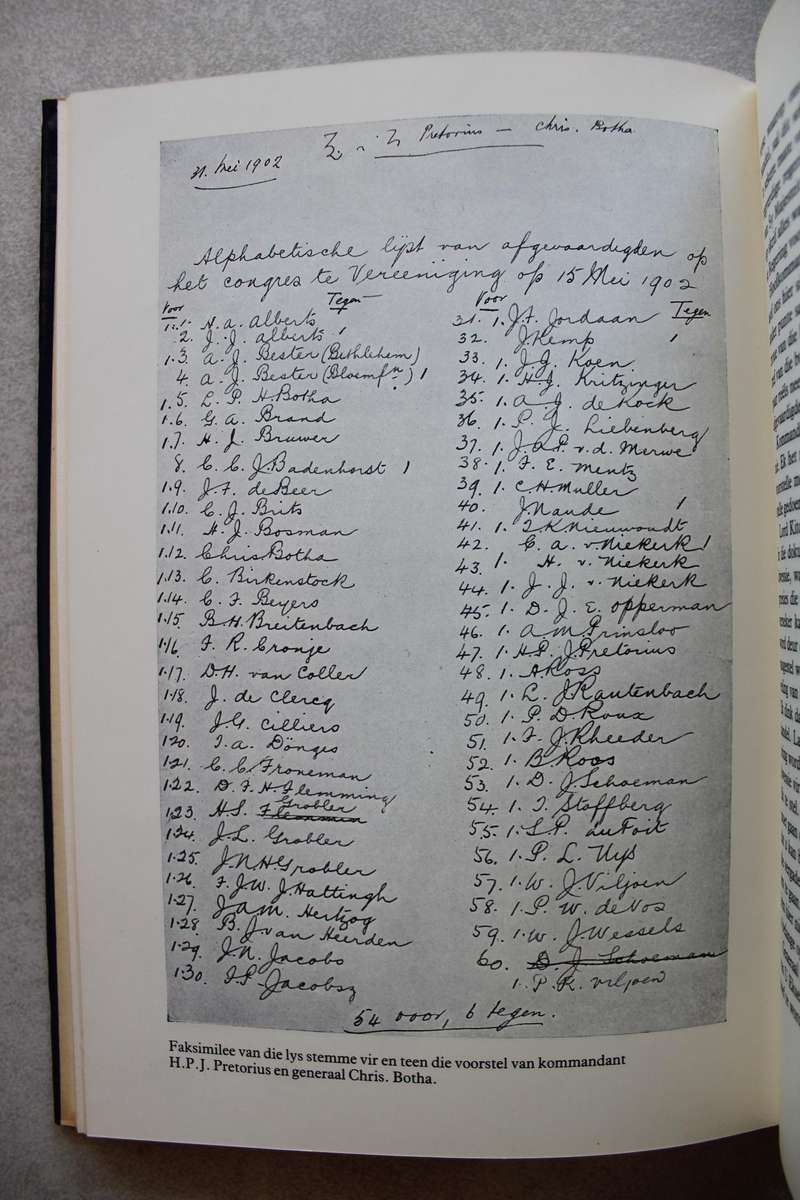 31. Mei 1902
Pretorius — Chris. Botha
Alphabetische lijst van afgevaardigden op
het congres te Vereeniging op 15 Mei 1902
Voor Tegen
1. 1. H. A. Alberts
2. J. J. Alberts 1
1. 3. A. J. Bester (Bethlehem)
4. A. J. Bester (Bloemfn.) 1
1. 5. L. P. H. Botha
1. 6. G. A. Brand
1. 7. H. J. Bruwer
8. C. C. J. Badenhorst 1
1. 9. J. F. de Beer
1. 10. C. J. Brits
1. 11. H. J. Bosman
1. 12. Chris Botha
1. 13. C. Birkenstock
1. 14. C. F. Beyers
1. 15. B. H. Breitenbach
1. 16. F. R. Cronje
1. 17. D. H. van Coller
1. 18. J. de Clercq
1. 19. J. G. Cilliers
1. 20. J. A. Dönges
1. 21. C. C. Froneman
1. 22. D. F. H. Flemming
1. 23. H. S. Flemmin Grobler
1. 24. J. L. Grobler
1. 25. J. N. H. Grobler
1. 26. F. J. W. J. Hattingh
1. 27. J. A. M. Hertzog
1. 28 B. J. van Heerden
1. 29. J. N. Jacobs
1. 30. F. P. Jacobsz
Voor Tegen
31. 1. J. F. Jordaan
32. J. Kemp 1
33. 1. J. J. Koen
34. 1. H. J. Kritzinger
35. 1. A. J. de Kock
36. 1. P. J. Liebenberg
37. 1. J. A. P. v. d. Merwe
38. 1. F. E. Mentz
39. 1. C. H. Muller
40. J. Naude 1
41. 1. J. K. Nieuwoudt
42. C. A. v. Niekerk 1
43. 1. H. v. Niekerk
44. 1. J. J. v. Niekerk
45. 1. D. J. E. Opperman
46. 1. A. M. Prinsloo
47. 1. H. P. J. Pretorius
48. 1. A. Ross
49. 1. L. J. Rautenbach
50. 1. P. D. Roux
51. 1. F. J. Rheeder
52. 1. B. Roos
53. 1. D. J. Schoeman
54. 1. J. Stoffberg
55. 1. S. P. du Toit
56. 1. P. L. Uys
57. 1. W. J. Viljoen
58. 1. P. W. de Vos
59. 1. W. J. Wessels
60. D. J. Schoeman
1. P. R. Viljoen
54 voor, 6 tegen.
Faksimilee van die lys stemme vir en teen die voorstel van kommandant
H.P.J. Pretorius en generaal Chris. Botha.